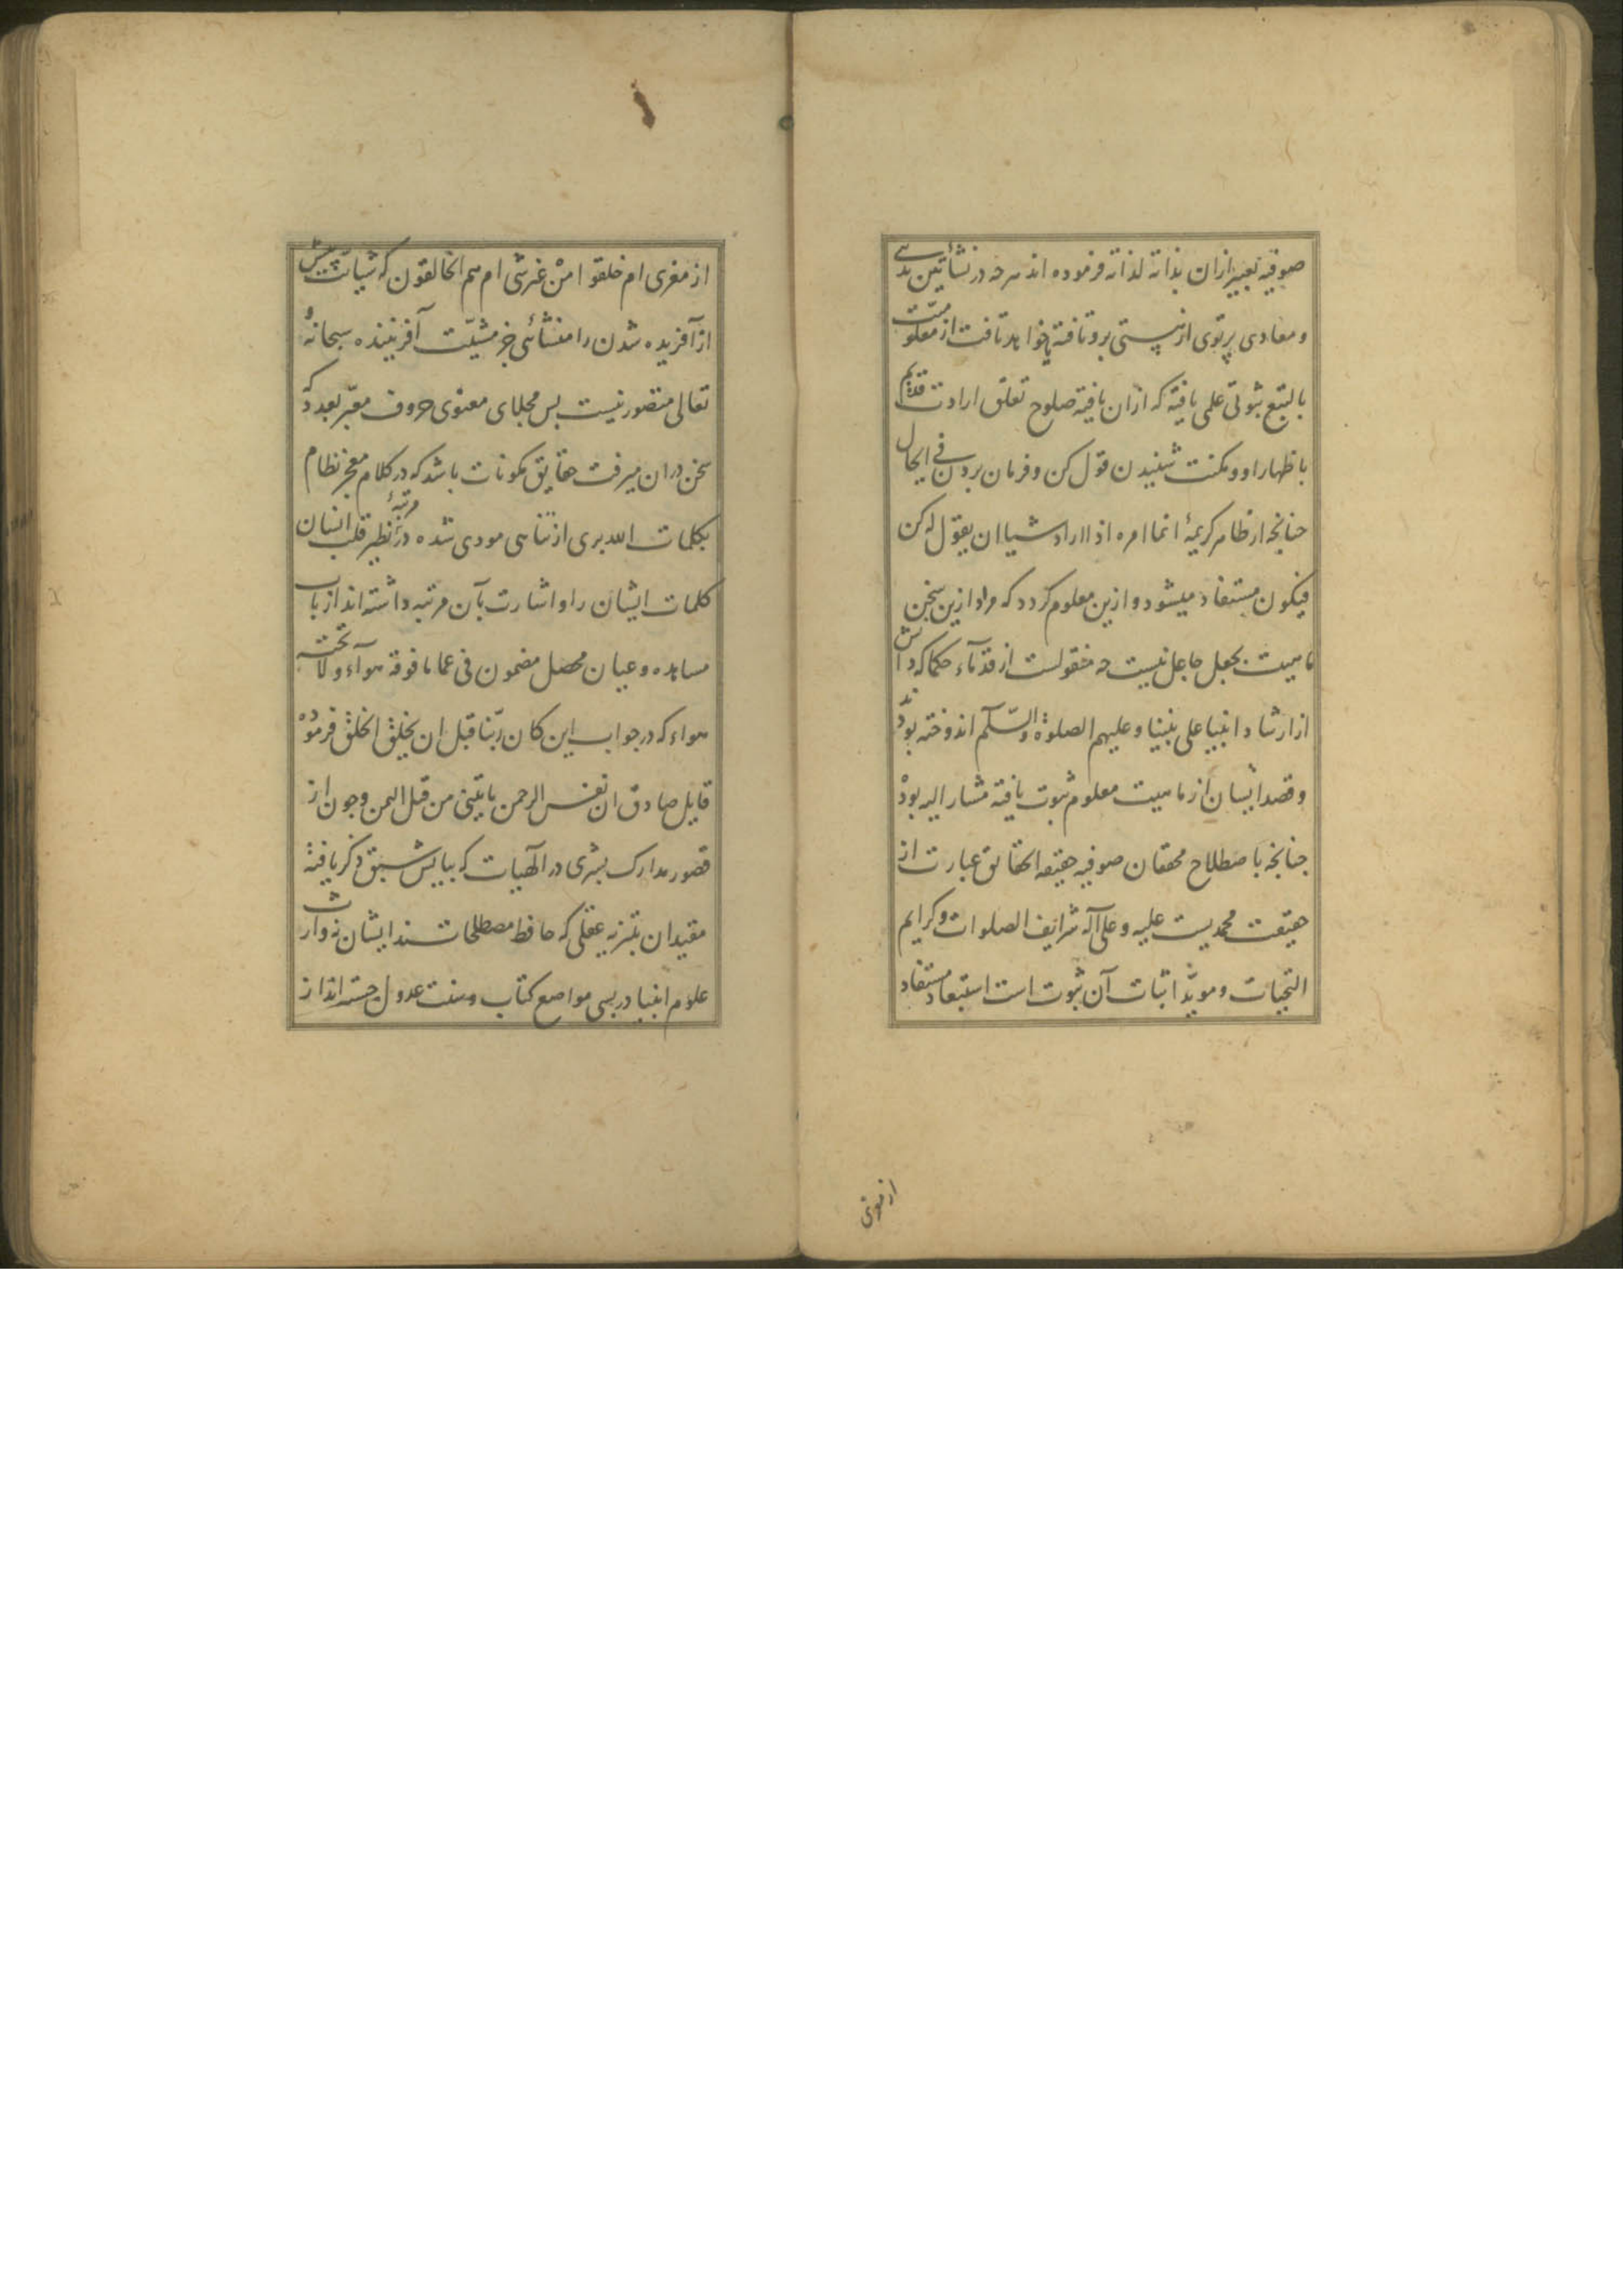 صوفیه تعبیر ازان بذاته لذاته فرموده اند هرچه در نشأتین بدئی
و معادی پرتوی از هستی برو تافته یا خواهد تافت از معلومیت
بالتبع ثبوتی علمی یافته که ازان یافته صلوح تعلق ارادت قدیم
باظهار او و مکنت شنیدن قول کن و فرمان بردن فی الحال
چنانچه از ظاهر کریمهٔ انما امره اذا اراد شیاا ان یقول له کن
فیکون مستفاد میشود و ازین معلوم گردد که مراد ازین سخن
ماهیت بجعل جاعل نیست چه منقولست از قدمآء حکما که دانش
از ارشاد انبیا علی نبینا و علیهم الصلوة والسّلام اندوخته بودند
و قصد ایشان از ماهیت معلوم ثبوت یافته مشار الیه بوده
چنانچه باصطلاح محققان صوفیه حقیقه الحقایق عبارت از
حقیقت محمدیست علیه و علی آله شرایف الصلوات و کرایم
التحیات و مویّد اثبات آن ثبوت است استبعاد مستفاد
از مغزی
از مغزی ام خلقوا من غیر شی ام هم الخالقون که شیأیت پیش
از آفریده شدن را منشائی جز مشیّت آفریننده سبحانهُ و
تعالی متصور نیست پس مجلای معنوی حروف معبّر بعدد که
سخن دران میرفت حقایق مکونات باشد که در کلام معجز نظام
بکلمات الله بری از تناهی مودی شده و در مرتبهٔ نظیر قلب انسان
کلمات ایشان را و اشارت بآن مرتبه داشته اند ارباب
مشاهده و عیان محصل مضمون فی عما ما فوقه هوآء و لا تحته
هواء که در جواب این کان ربّنا قبل ان یخلق الخلق فرموده
قایل صادق ان نفس الرحمن یاتینی من قبل الیمن و چون از
قصور مدارک بشری در الهیات که بیایش سبق ذکر یافته
مقیدان بتنزیه عقلی که حافظ مصطلحات اند ایشان نه وارث
علوم انبیا در بسی مواضع کتاب و سنت عدول جسته اند از